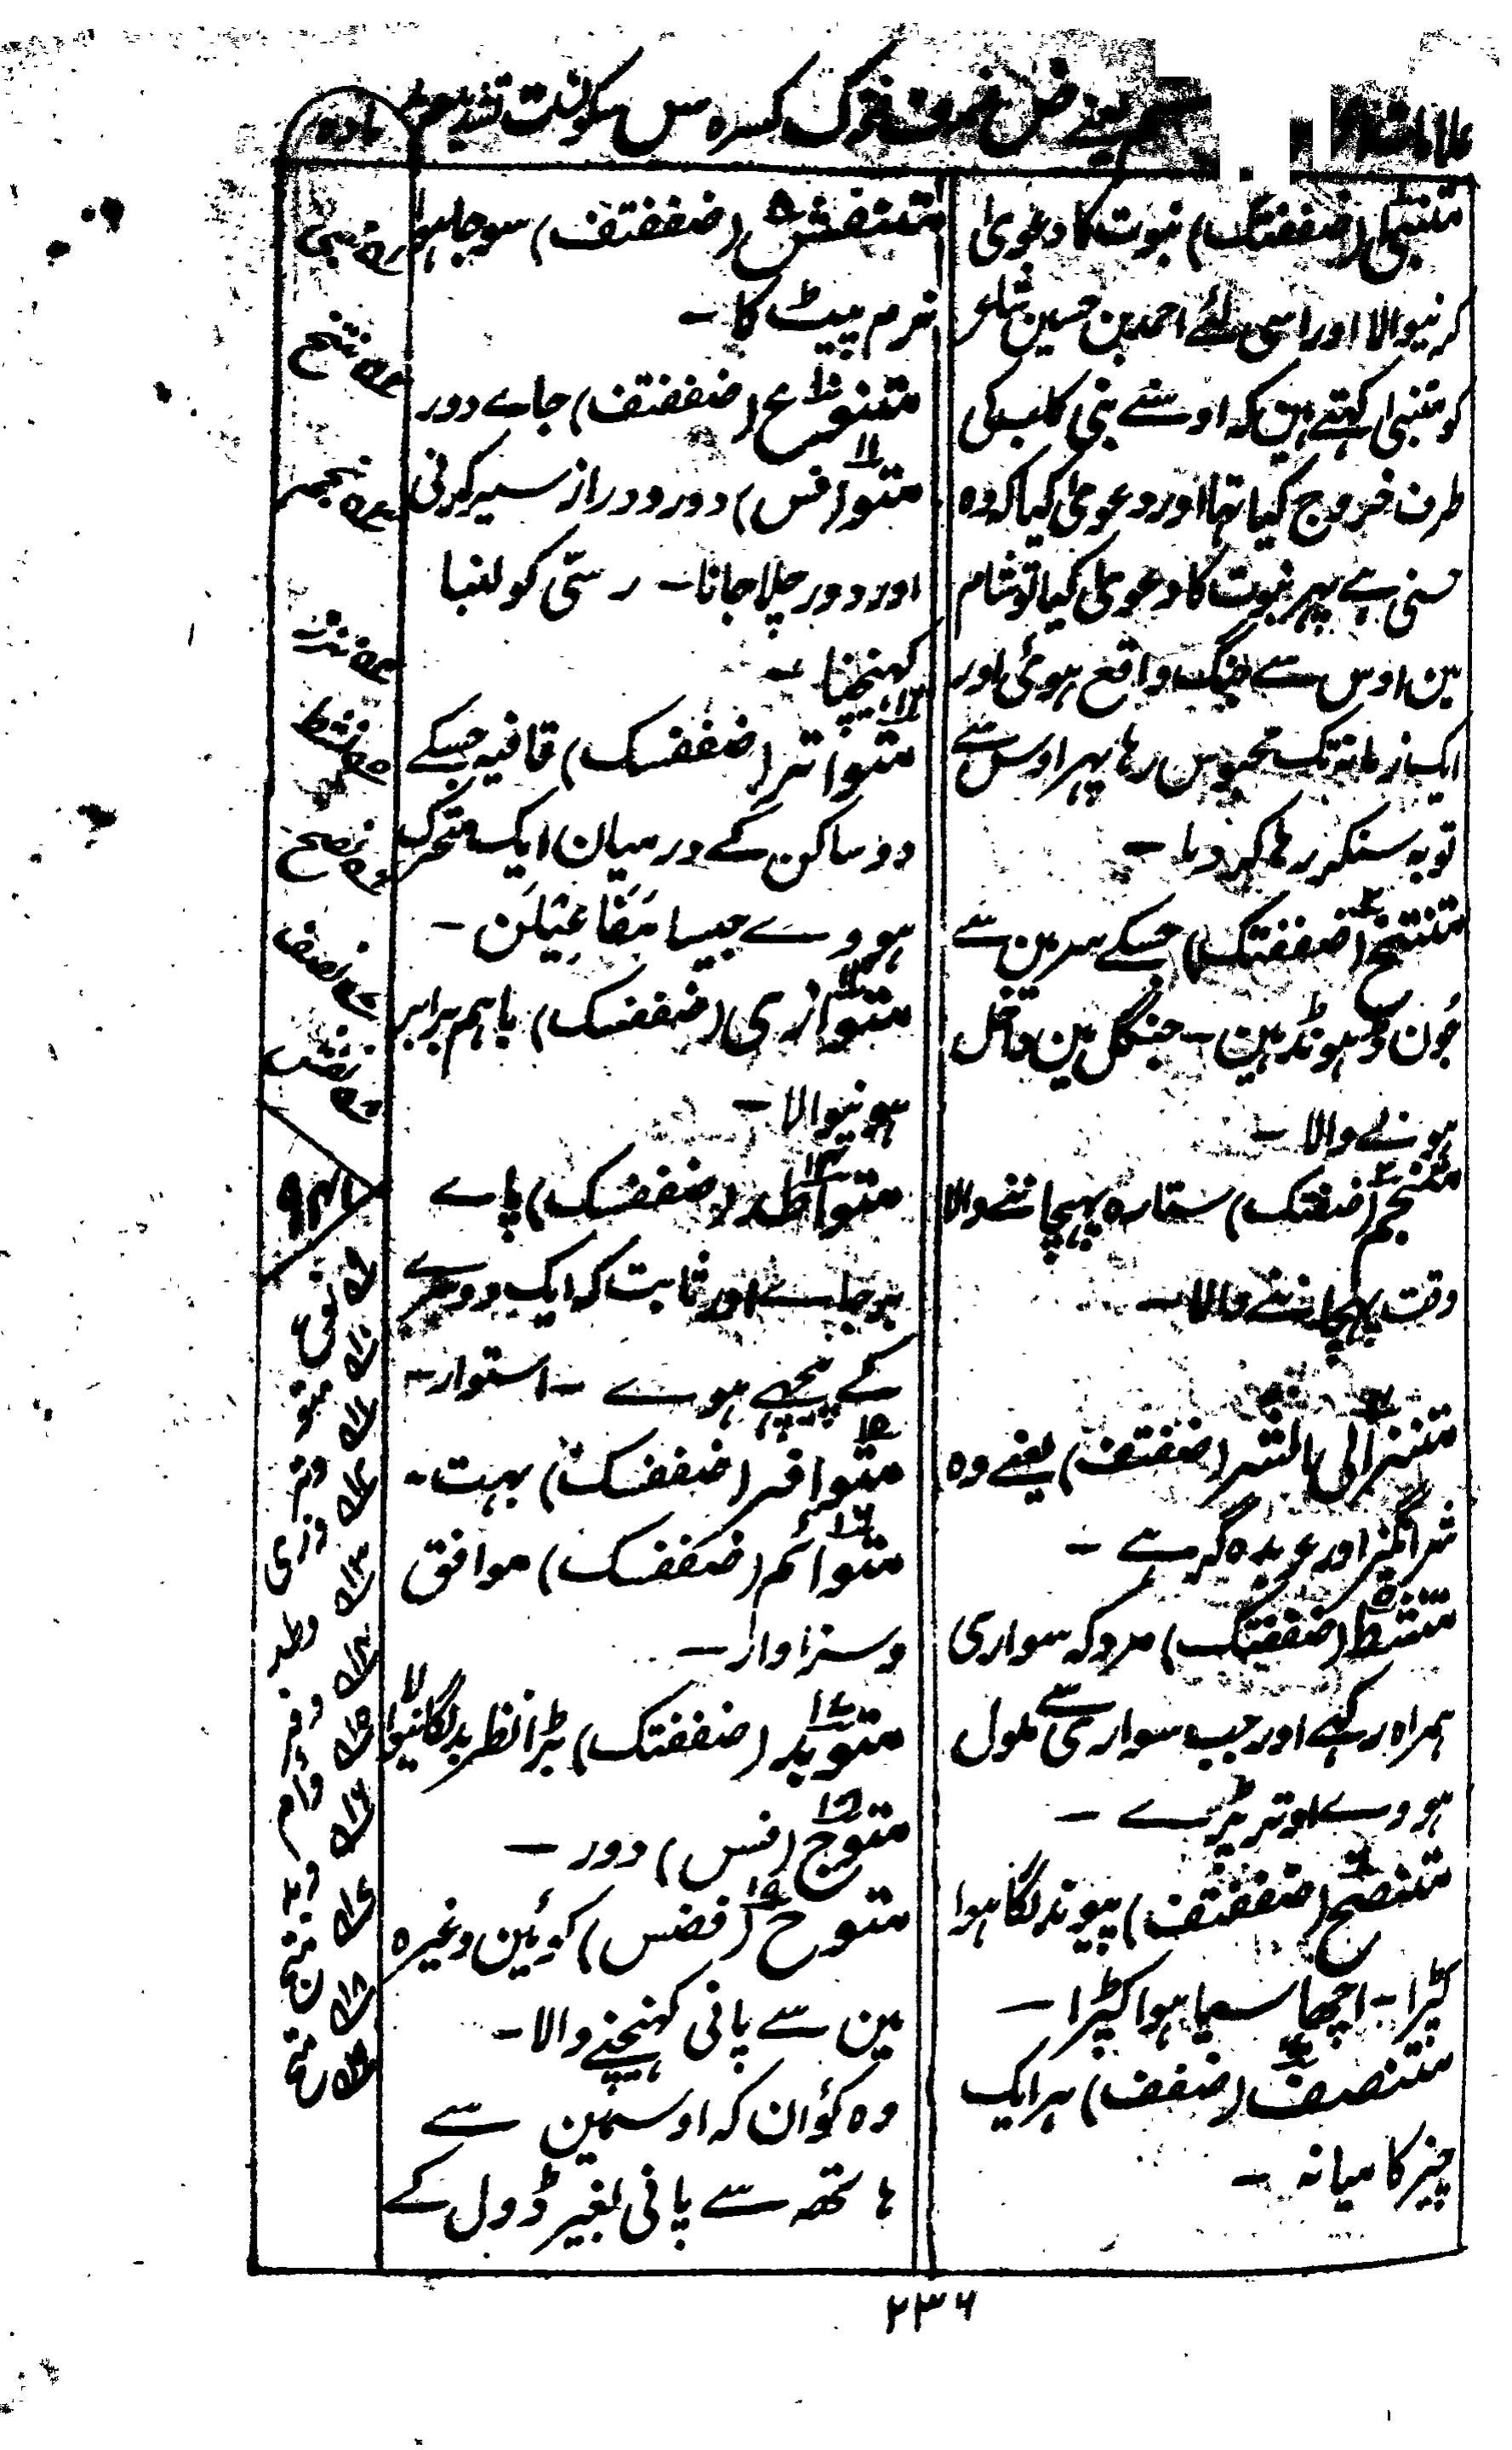 علامات
یعنے ض ضمہ ف فتحہ ک کسرہ س سکون ت تشدید
مادہ
متنبی (ضففتک) نبوت کا دعویٰ
کرنیوالا اور اسی لئے احمد بن حسین شاعر
کو متنبی کہتے ہین کہ اوسنے بنی کلب کی
طرف خروج کیا تہا اور دعویٰ کیا کہ وہ
حسنی ہے پہر نبوت کا دعویٰ کیا تو شام
مین اوس سے جنگ واقع ہوئی اور
ایک زمانہ تک محبوس رہا پہر اوس سے
توبہ سنکر رہا کر دیا ۔
متنتخ (ضففتک) جسکے سرمین سے
جُون ڈہونڈہین ۔ جنگل مین
ہونے والا ۔
متنجم (ضفتک) ستارہ پہچاننے والا
وقت پہچاننے والا ۔
متنزالی بالشر (ضفتف) یعنے وہ
شر انگیز اور عربدہ گر ہے ۔
متنشط (ضففتک) مرد کہ سواری
ہمراہ رکہے اور جب سواری سے ملول
ہووے اوتر پڑے ۔
متنصح (ضففتف) پیوند لگا ہوا
کپڑا ۔ اچھا سیا ہوا کپڑا ۔
متنصف (ضففف) ہر ایک
چیز کا میانہ ۔
متنفش (ضففتف) سوجا ہوا
نرم پیٹ کا ۔
متنوع (ضففتف) جاے دور
۱۱
متو (فس) دور و دراز سیر کرنی
اور دور چلا جانا ۔ رسّی کو لنبا
کہنچنا ۔
۱۲
متواتر (ضففسک) قافیہ جسکے
دو ساکن کے درمیان ایک متحرک
ہووے جیسا مَفَاعِیلَن ۔
متوازی (ضففسک) باہم برابر
ہونیوالا ۔
متواطد (ضففسک) پاے
برجاے اور ثابت کہ ایک دوسرے
کے پیچھے ہوے ۔ استوار ۔
۱۵
متوافر (ضففسک) بہت ۔
۱۶
متوائم (ضففسک) موافق
و سزاوار ۔
۱۷
متوبد (ضففتک) بڑا نظر بد لگانیوالا
متوج (فس) دور ۔
متوح (فضس) کوئین وغیرہ
مین سے پانی کہنچنے والا ۔
وہ کوئان کہ اوسمین سے
ہاتھ سے پانی بغیر ڈول کے
نتخ
نجم
نشط
نصح
نصف
نفش
متو
وتر
وزی
وطد
وفر
وام
وبد
متح
۲۳۶